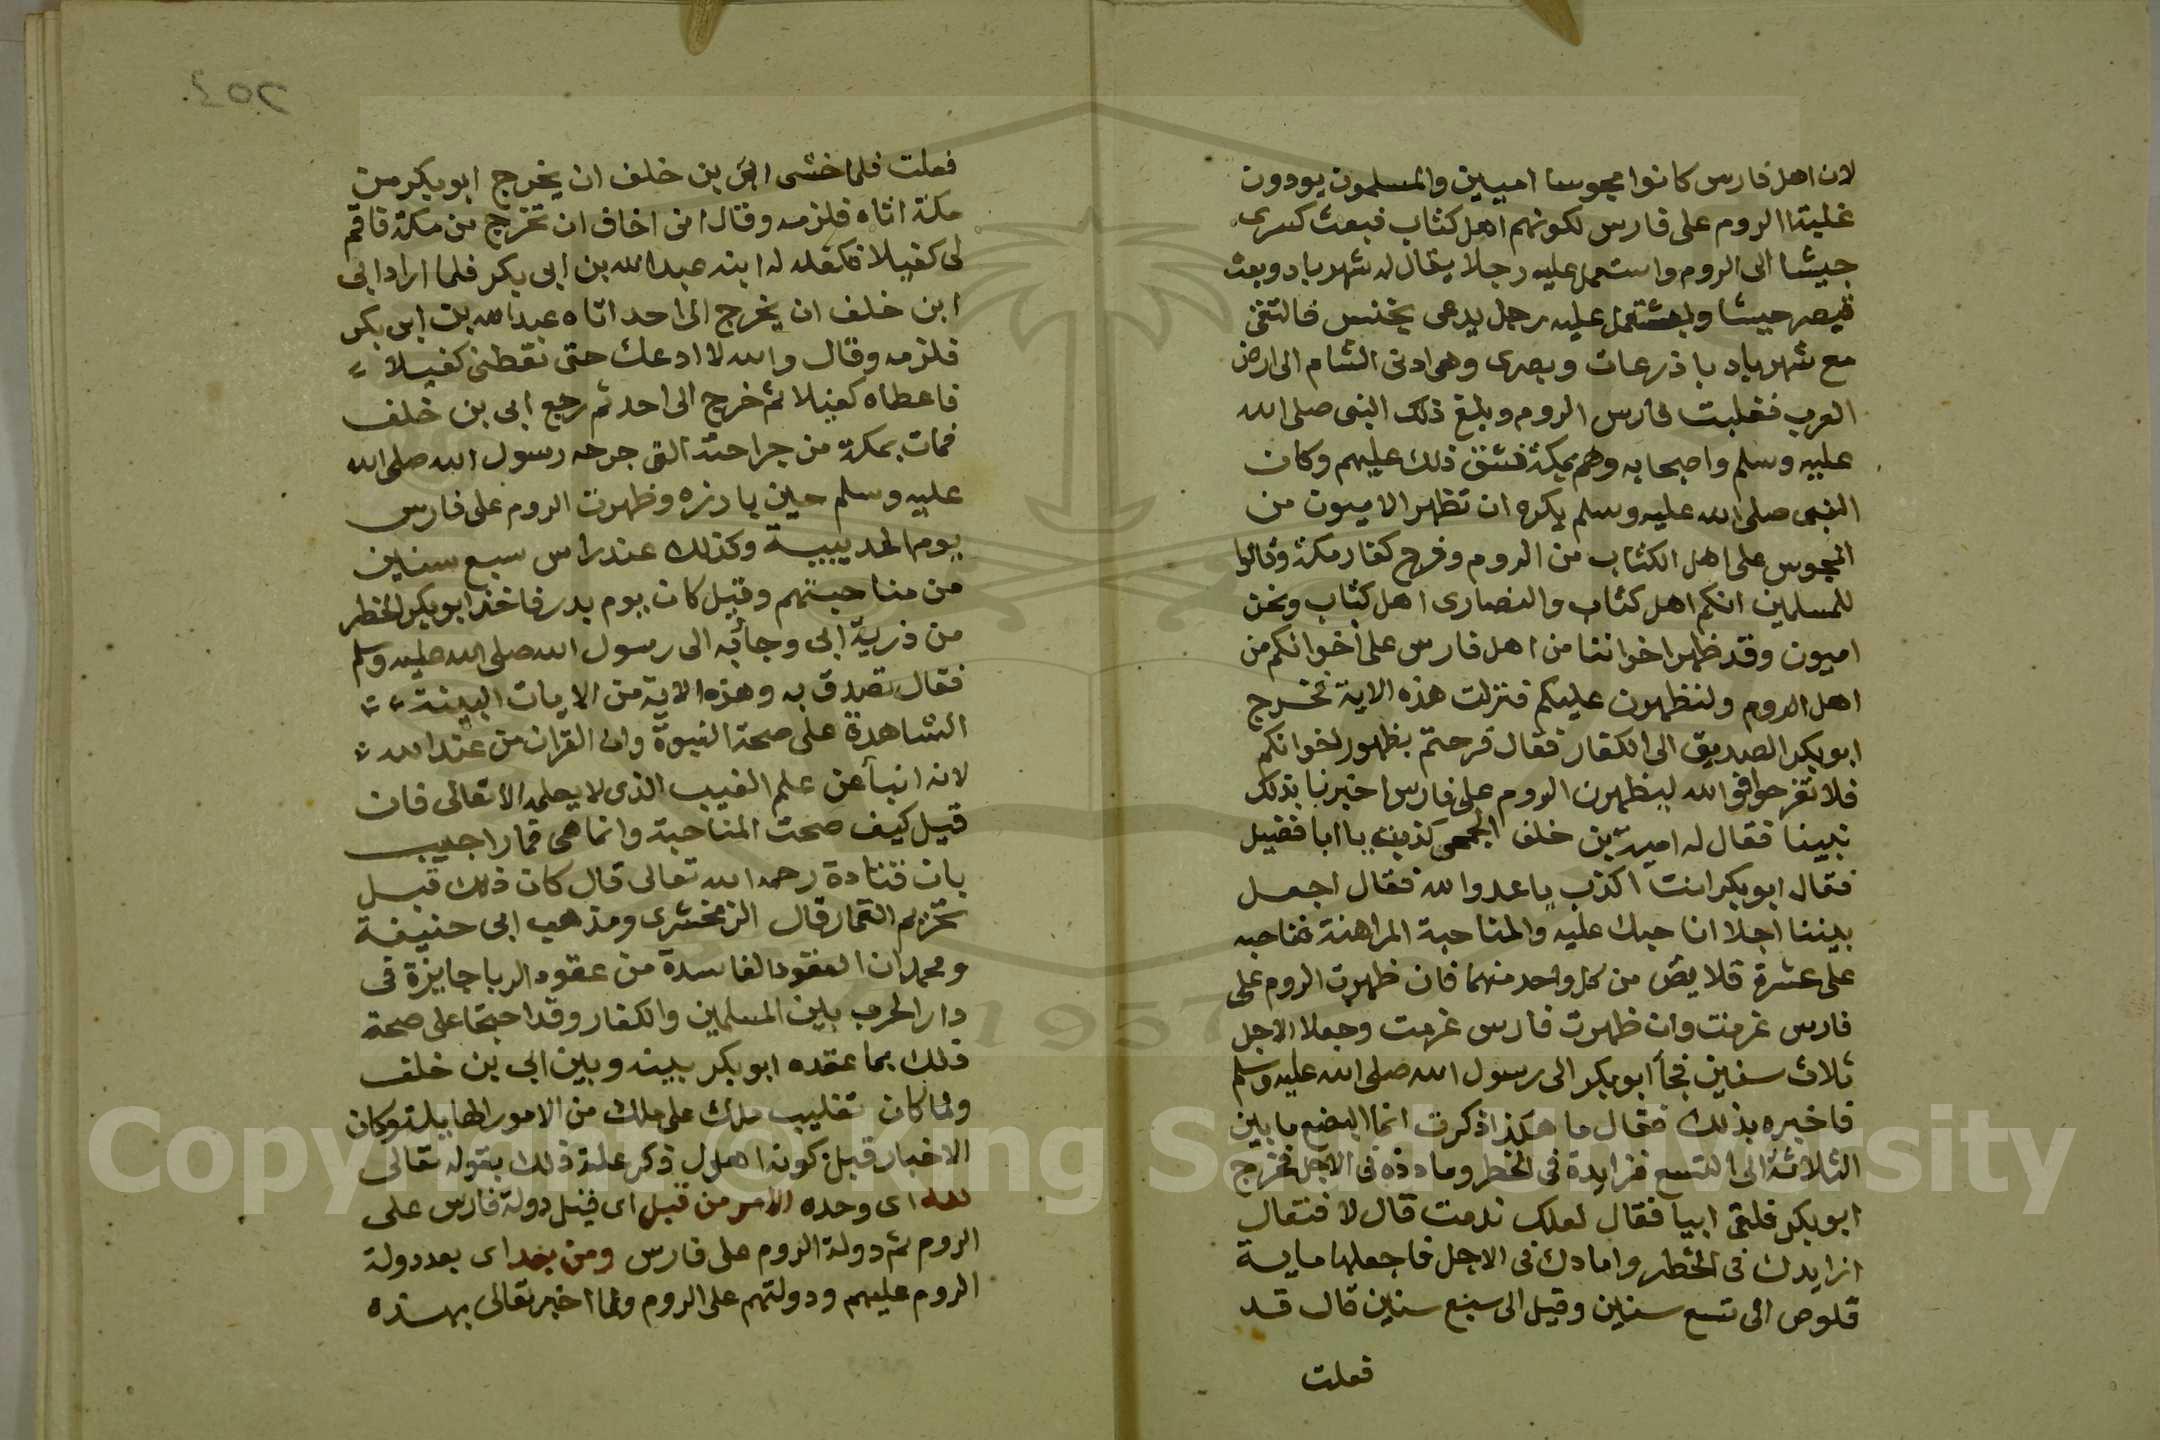 لان اهل فارس كانوا مجوسا اميين والمسلمون يودون
غلبة الروم على فارس لكونهم اهل كتاب فبعث كسرى
جيشا الى الروم واستعمل عليه رجلا يقال له شهرباد وبعث
قيصر جيشا واستعمل عليه رجل يدعى يخنس فالتقى
مع شهرباد باذرعات وبصرى وهى ادنى الشام الى ارض
العرب فغلبت فارس الروم وبلغ ذلك النبى صلى الله
عليه وسلم واصحابه وهم بمكة فشق ذلك عليهم وكان
النبى صلى الله عليه وسلم يكره ان تظهر الاميون من
المجوس على اهل الكتاب من الروم وفرح كفار مكة وقالوا
للمسلمين انكم اهل كتاب والنصارى اهل كتاب ونحن
اميون وقد ظهر اخواننا من اهل فارس على اخوانكم من
اهل الروم ولنظهرن عليكم فنزلت هذه الاية فخرج
ابو بكر الصديق الى الكفار فقال فرحتم بظهور اخوانكم
فلا تفرحوا فوالله ليظهرن الروم على فارس اخبرنا بذلك
نبينا فقال له امية بن خلف الجمحى كذبت يا ابا فضيل
فقال ابو بكر انت اكذب يا عدو الله فقال اجعل
بيننا اجلا اناحبك عليه والمناحبة المراهنة فناحبه
على عشرة قلايص من كل واحد منهما فان ظهرت الروم على
فارس غرمت وان ظهرت فارس غرمت وجعلا الاجل
ثلاث سنين فجأ ابو بكر الى رسول الله صلى الله عليه وسلم
فاخبره بذلك فقال ما هكذا ذكرت انما البضع ما بين
الثلاثة الى التسع فزايدة فى الخطر وماددة فى الاجل فخرج
ابو بكر فلقى ابيا فقال لعلك ندمت قال لا فتعال
ازايدك فى الخطر وامادك فى الاجل فاجعلها ماية
قلوص الى تسع سنين وقيل الى سبع سنين قال قد
فعلت
٢٥٤
فعلت فلما خشى ابى بن خلف ان يخرج ابو بكر من
مكة اتاه فلزمه وقال انى اخاف ان تخرج من مكة فاقم
لى كفيلا فكفله له ابنه عبد الله بن ابى بكر فلما اراد ابى
ابن خلف ان يخرج الى احد اتاه عبد الله بن ابى بكر
فلزمه وقال والله لا ادعك حتى تعطنى كفيلا
فاعطاه كفيلا ثم خرج الى احد ثم رجع ابى بن خلف
فمات بمكة من جراحته التى جرحه رسول الله صلى الله
عليه وسلم حين بارزه وظهرت الروم على فارس
يوم الحديبية وكذلك عند راس سبع سنين
من مناحبتهم وقيل كان يوم بدر فاخذ ابو بكر الخطر
من ذرية ابى وجأ به الى رسول الله صلى الله عليه وسلم
فقال تصدق به وهذه الاية من الايات البينة
الشاهدة على صحة النبوة وان القران من عند الله
لانه انبأ عن علم الغيب الذى لا يعلمه الا تعالى فان
قيل كيف صحت المناحبة وانما هى قمار اجيب
بان قتادة رحمه الله تعالى قال كان ذلك قبل
تحريم القمار قال الزمخشرى ومذهب ابى حنيفة
ومحمد ان العقود الفاسدة من عقود الربا جايزة فى
دار الحرب بين المسلمين والكفار وقد احتجا على صحة
ذلك بما عقده ابو بكر بينه وبين ابى بن خلف
ولما كان تغليب ملك على ملك من الامور الهايلة وكان
الاخبار قبل كونه اهول ذكر علة ذلك بقوله تعالى
لله اى وحده الامر من قبل اى قبل دولة فارس على
الروم ثم دولة الروم على فارس ومن بعد اى بعد دولة
الروم عليهم ودولتهم على الروم ولما اخبر تعالى بهذه
Copyright © King Saud University
1957